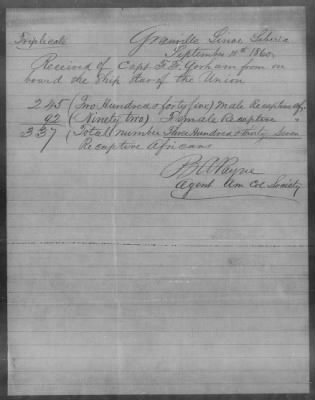 Triplicate
Greenville Sinoe Liberia
September 10th 1860
Received of Capt. F. F. Gorham from on
board the Ship Star of the Union
245 (Two Hundred & forty five) Male Recaptive Af.
92 (Ninety two) Female Recaptive "
337 Total number Three Hundred & thirty Seven
Recaptive Africans
B A Payne
Agent Am Col Society